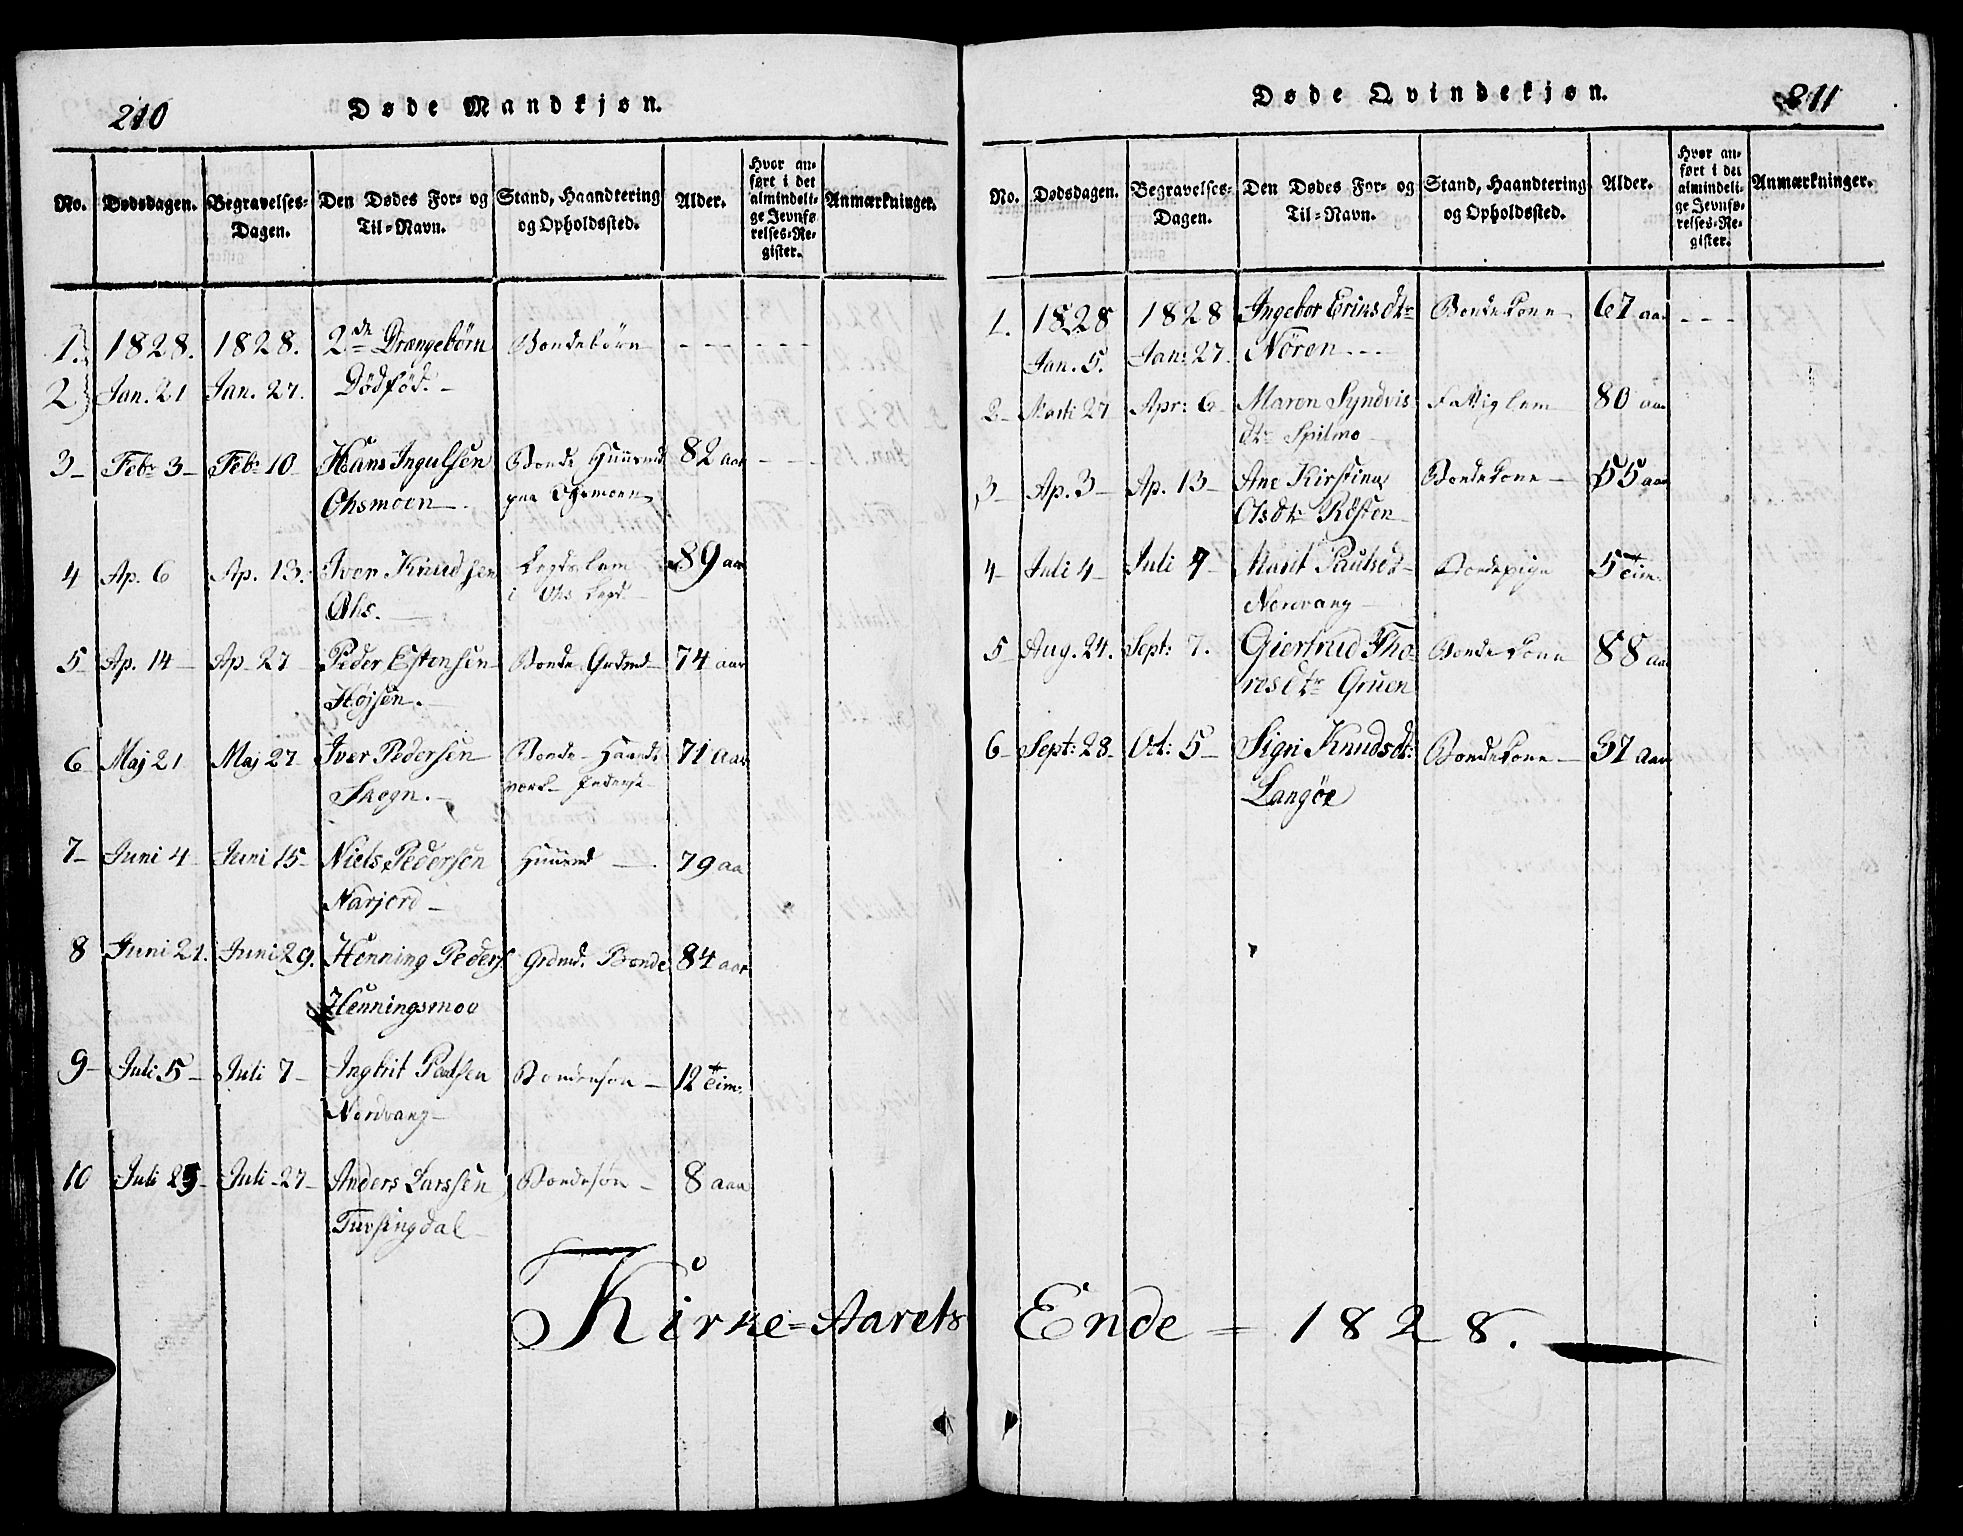 210
Døde Mandkjøn.
No. Dødsdagen. Begravelses-Dagen. Den Dødes For- og Til-Navn. Stand, Haandtering og Opholdssted. Alder. Hvor anført i det almindelige Jevnførelses-Register. Anmærkninger.
1. 1828. 1828. 2de Drengebørn Bondebørn - - - - - -
2 Jan. 21 Jan. 27. Dødfød. -
3 - Febr 3 - Febr 10 - Hans Ingulsen Bonde Huusmd 82 aar - - -
Ohsmoen - paa Ohsmoen
4 Ap. 6 Ap. 13. Iver Knudsen Legdslem 89 aar
Ohs. - i Ohs Legd. -
5 Ap. 14 - Ap. 27 Peder Estensen Bonde Grdmd - 74 aar
Højsen. -
6 Maj 21 Maj 27 Iver Pedersen Bonde - Haand- 71 aar
Skogn. -
7 - Juni 4 - Juni 15 - Niels Pedersen Huusmd - 79 aa
Narjord -
8 Juni 21. Juni 29. Henning Peders. Grdmd. Bonde 84 aar
Henningsmoe
9 - Juli 5 - Juli 7 - Ingbrit Paulsen Bondesøn - 12 Tim:
Nordvang -
10 Juli 25 - Juli - 27 - Anders Larssen Bondesøn - 8 aar
Tursingdal -
Kirke=Aarets
Døde Qvindekjøn.
211
No. Dødsdagen. Begravelses-Dagen. Den Dødes For- og Til-Navn. Stand, Haandtering og Opholdssted. Alder. Hvor anført i det almindelige Jevnførelses-Register. Anmærkninger.
1. 1828 1828 Ingebor Eriksdtr Bondekone - 67 aar - - -
Jan. 5. Jan: 27. Nören - - -
2 - Marti 27 Apr: 6 - Maren Syndvis Fattiglem 80 aar
dtr Spelmo -
3 - Ap. 3 - Ap. 13 - Ane Kirstina Bondekone - 55 aar
Olsdtr Røsten
4 - Juli 4 - Juli 7 - Marit Paulsd - Bondepige 5 Tim:
Nordvang -
5 - Aug. 24. Sept: 7. Giertrud Tho- Bondekone 88 aar
resdtr Gruen
6 - Sept: 28 - Oct: 5 - Sigri Knudsdt: Bondekone - 37 Aar
Langøe
Ende = 1828.